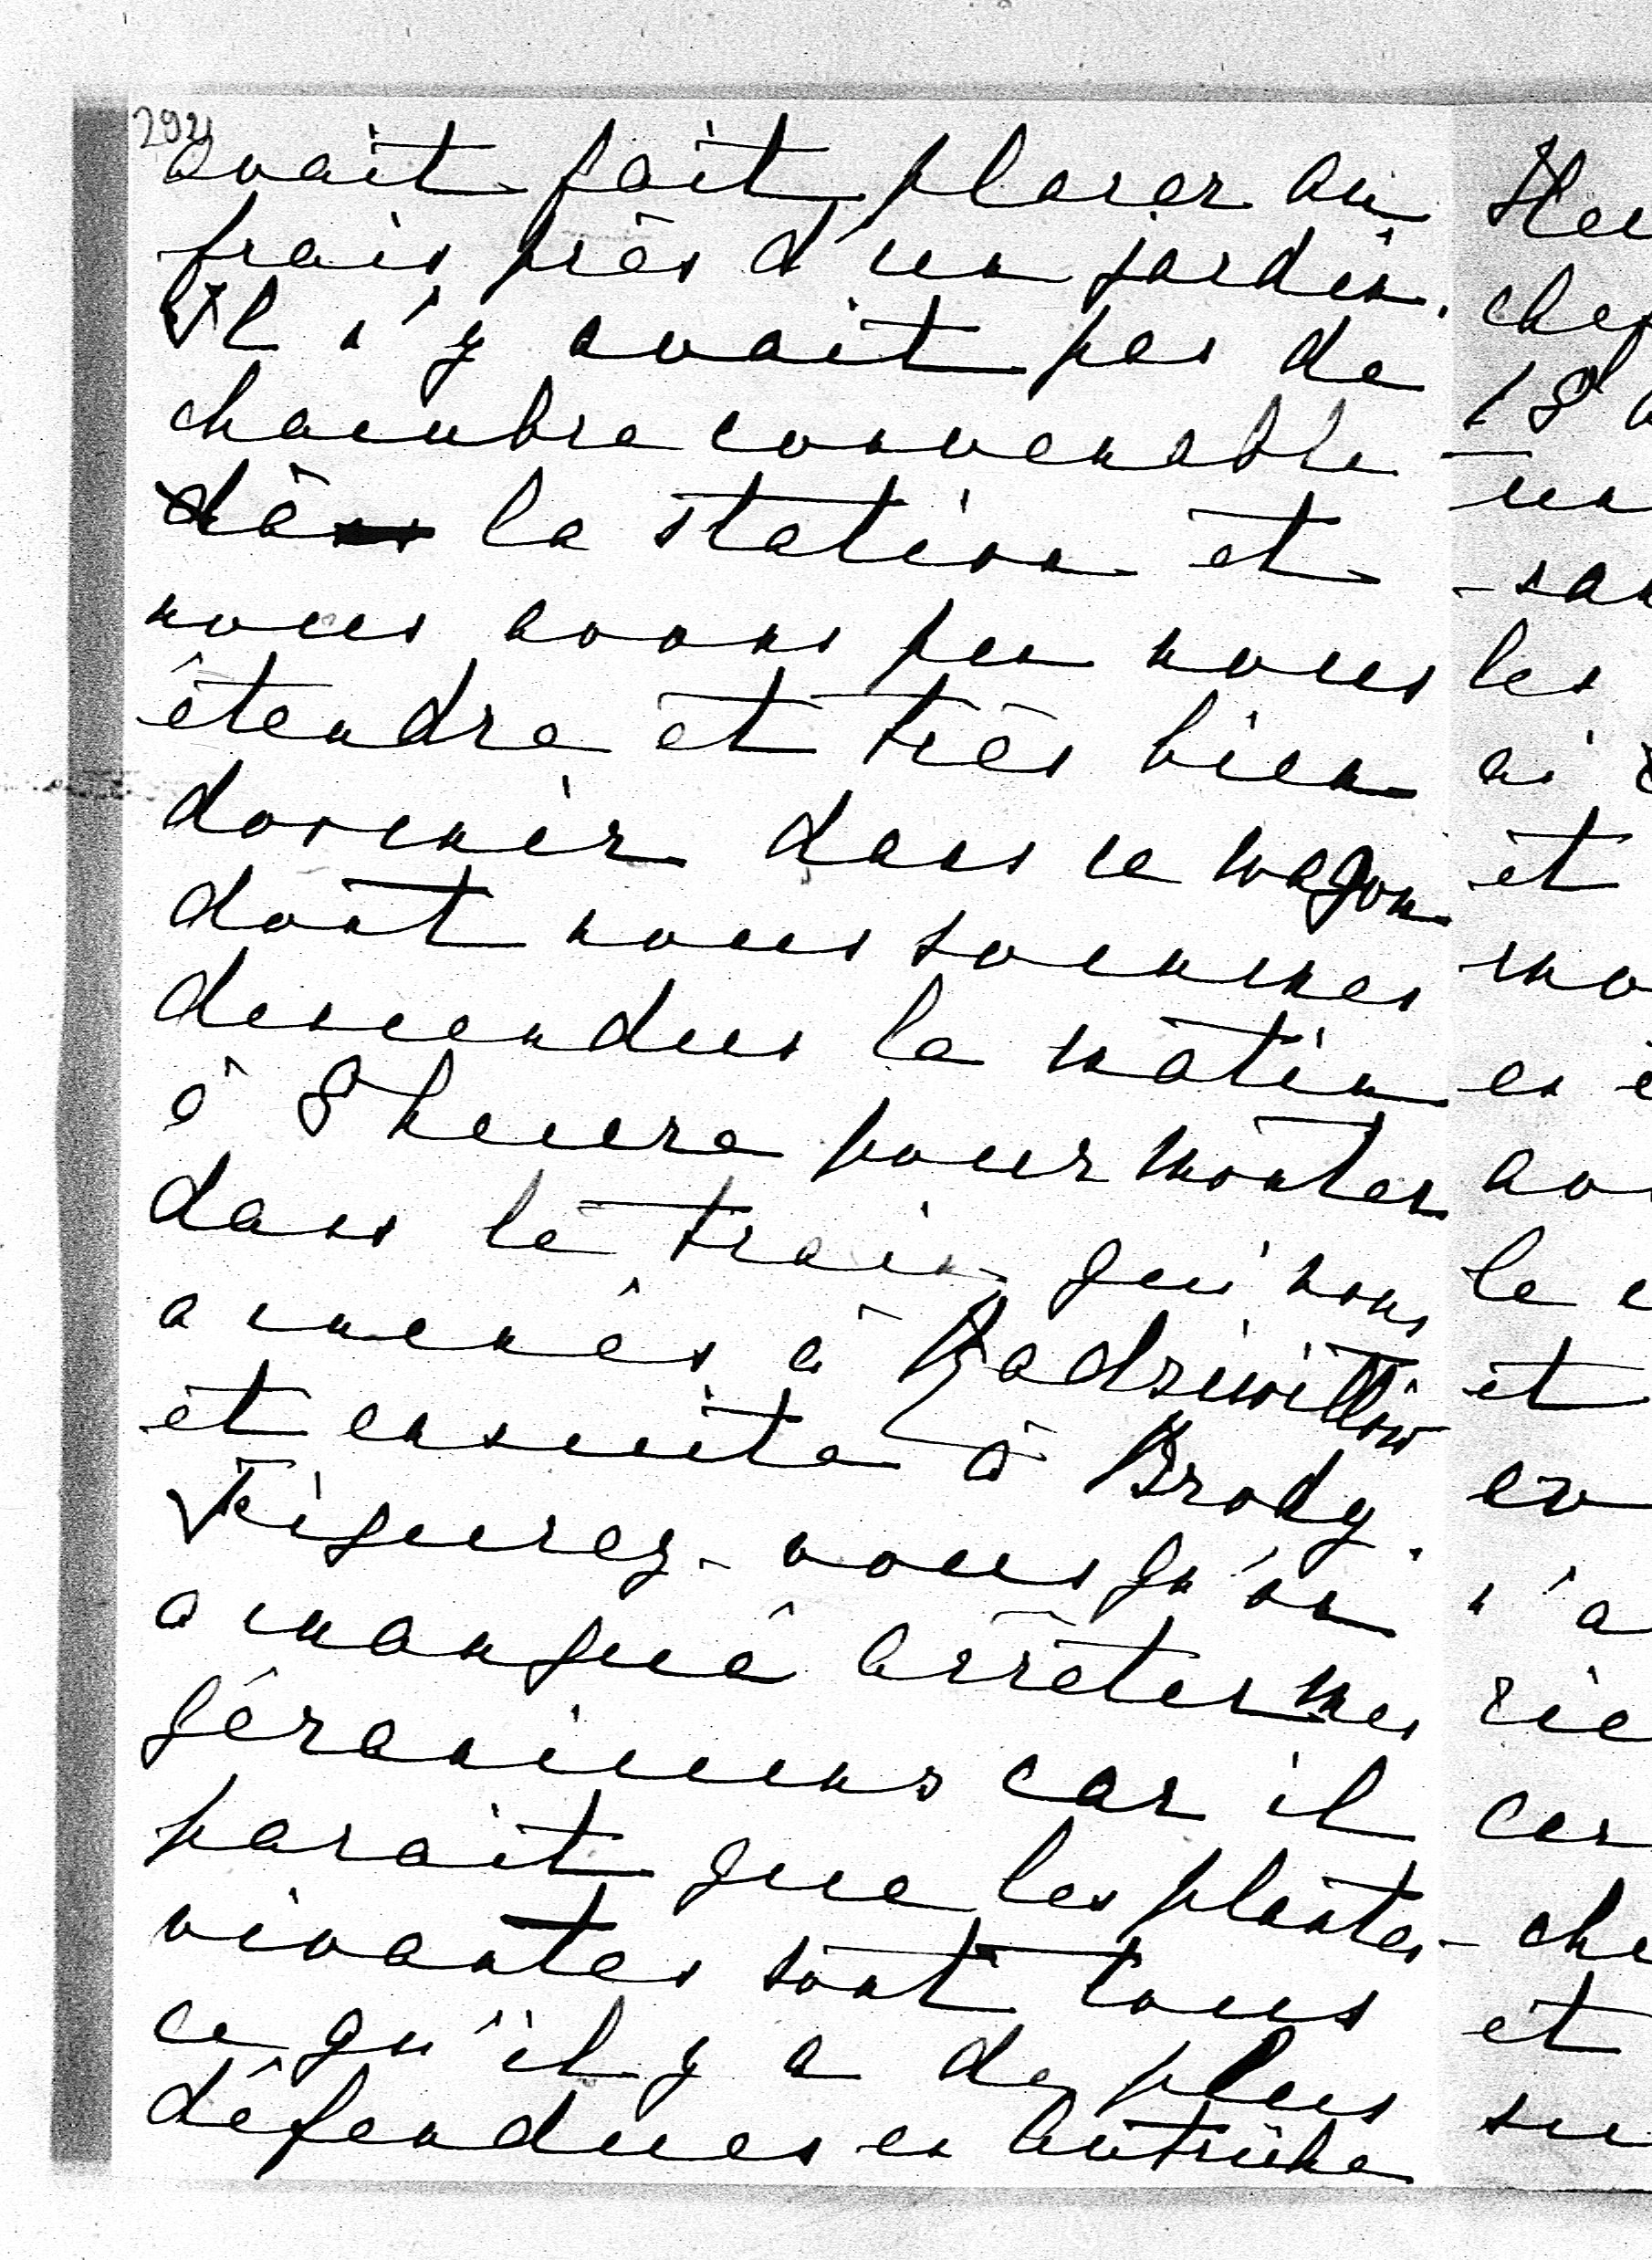 292
avait fait placer au
frais près d'un jardin.
Il n'y avait pas de
chambre convenable
dà la station et
nous avons pu nous
étendre et très bien
dormir dans ce wagon
dont nous sommes
descendus le matin
à 8 heure pour monter
dans le train qui nous
a menés à Radziwillow
et ensuite à Brody.
Figurez-vous qu'on
a manqué arrêter mes
géraniums car il
parait que les plantes
vivantes sont tous
ce qu'il y a de plus
défendues en Autriche